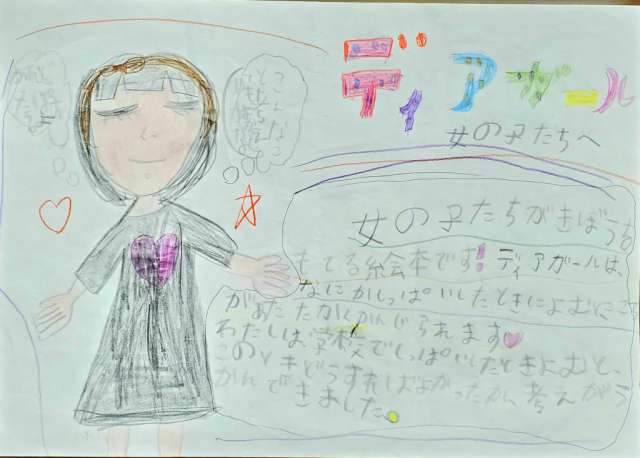 ディアガール
女の子たちへ
女の子たちがきぼうを
もてる絵本です!ディアガールは、
なにかしっぱいしたときによむとこころ
があたたかくかんじられます
わたしは学校でしっぱいしたときよむと、
このときどうすればよかったか、考えがう
かんできました。